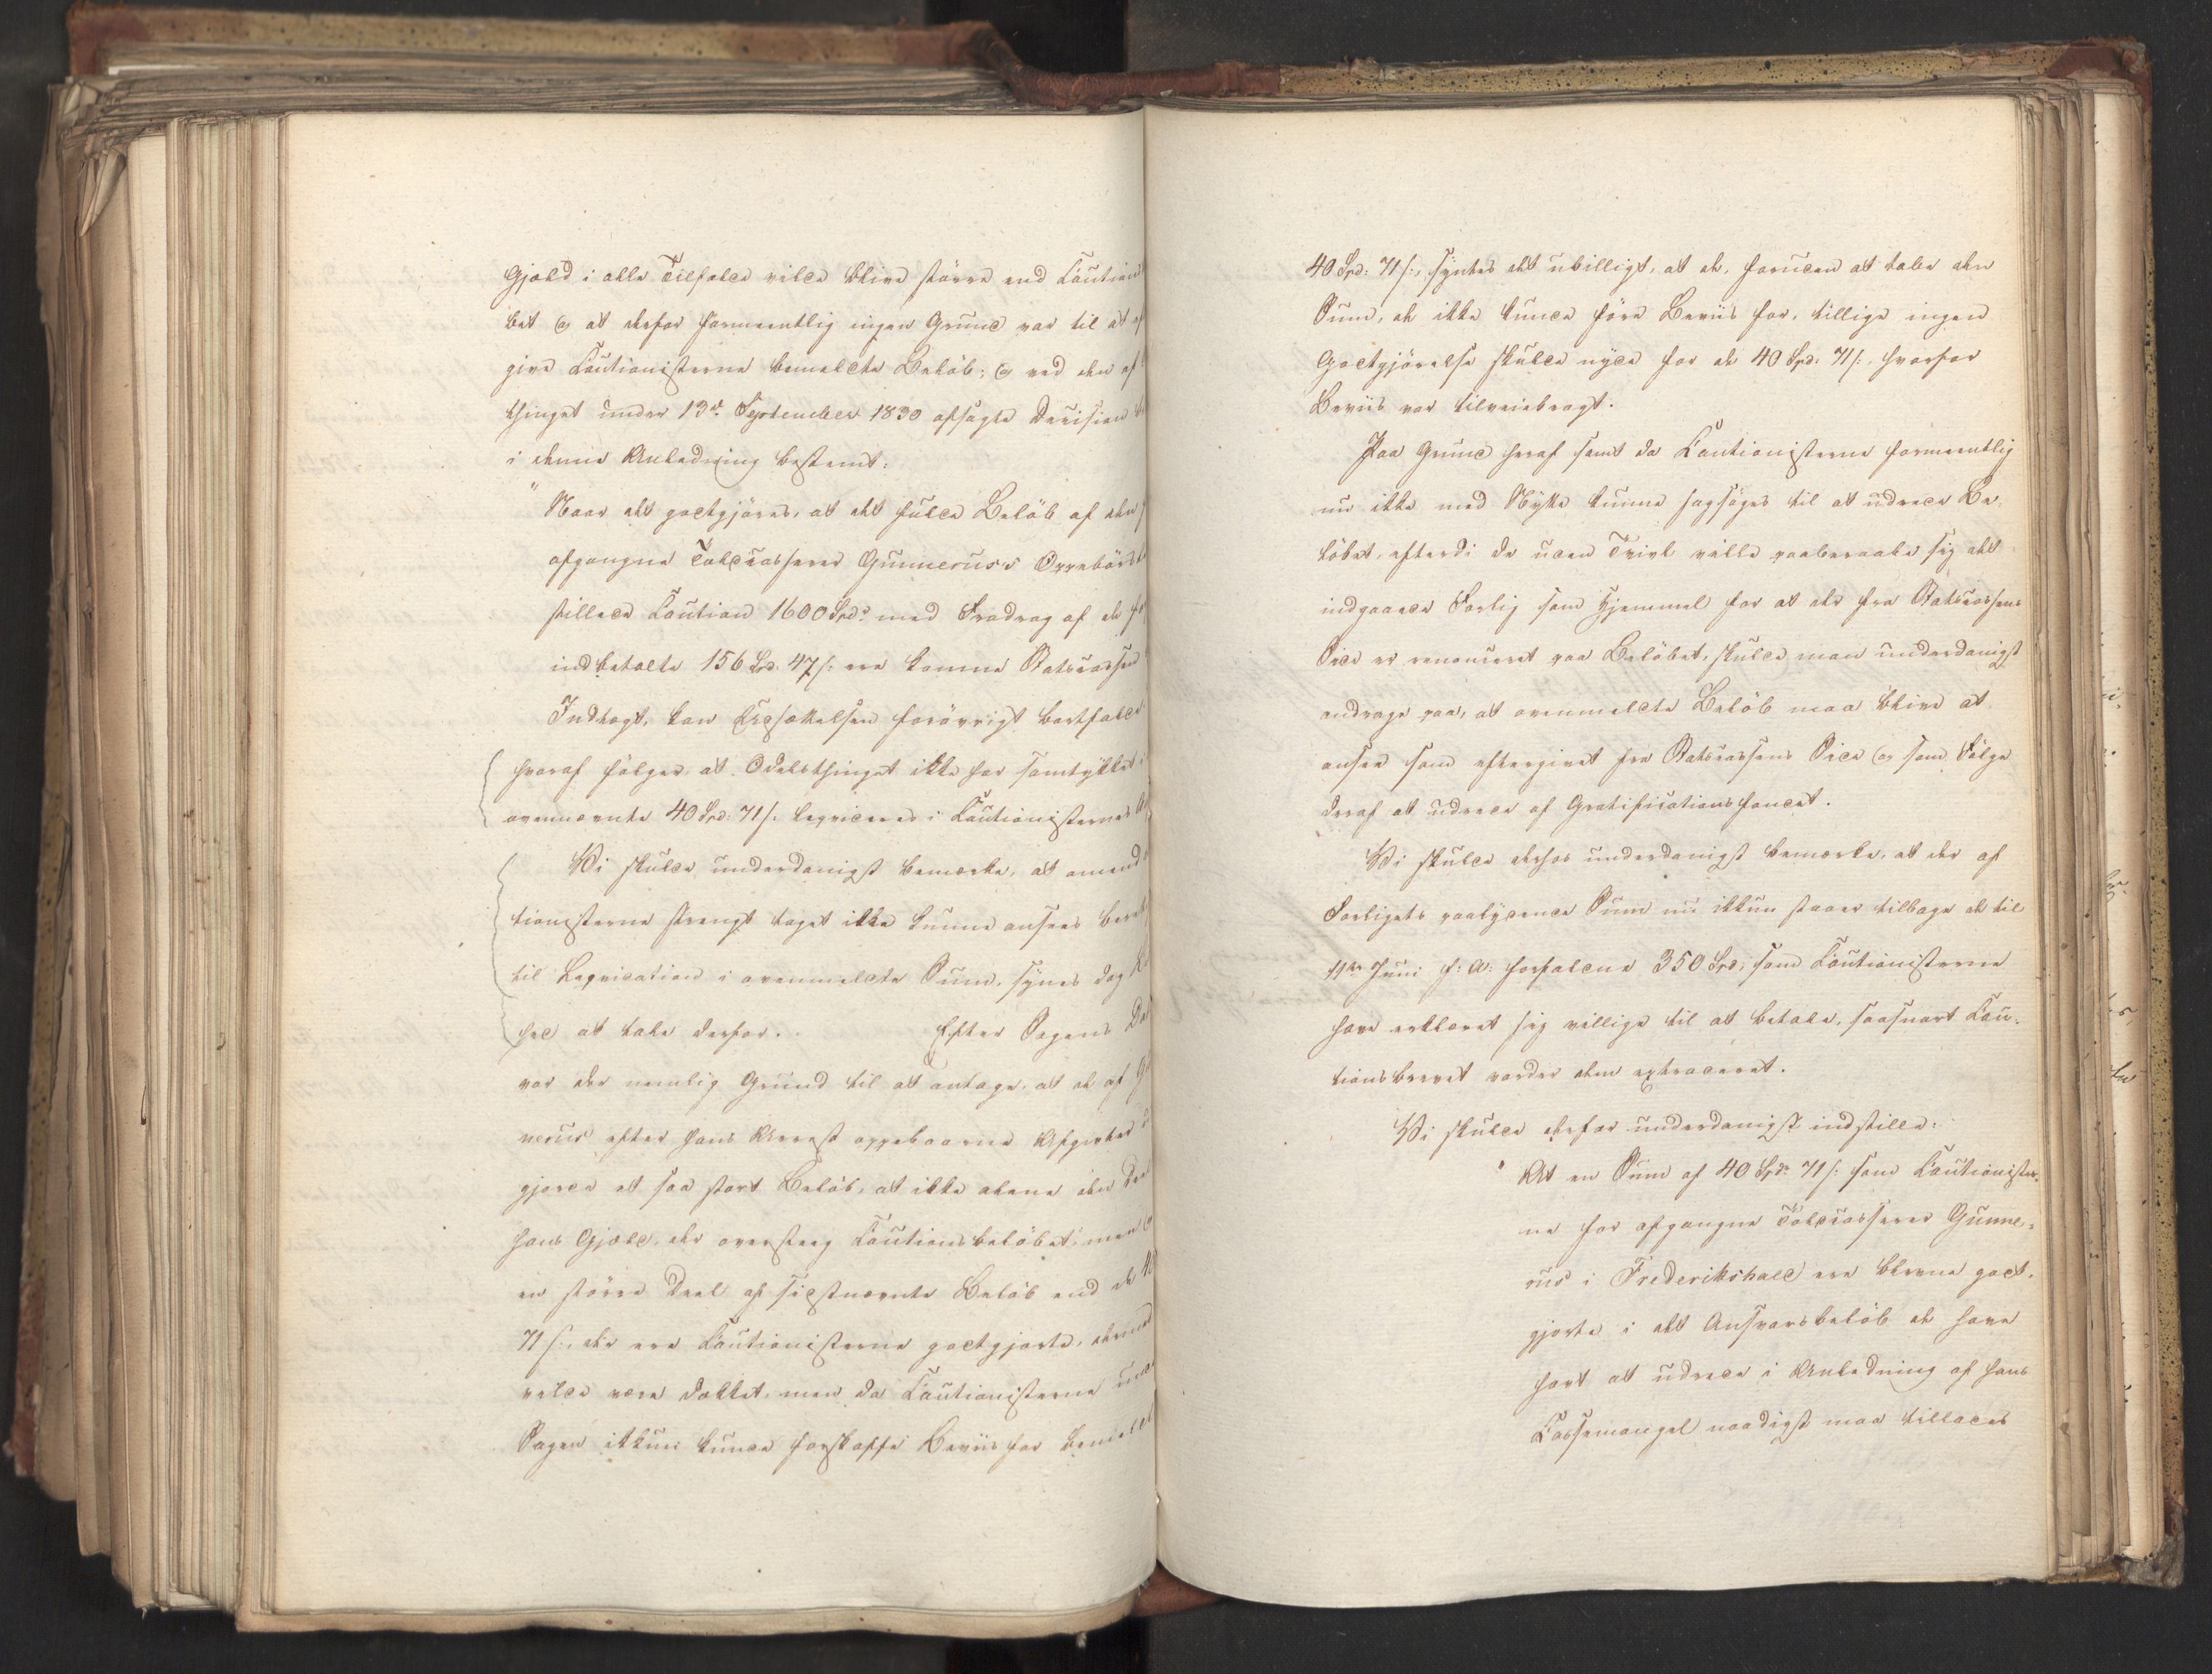 Gjæld i alle Tilfælde vilde blive større end Caution
bet og at derfor formeentlig ingen Grund var til at ef
give Cautionisterne bemeldte Beløb; og ved den af
thinget under 13de September 1830 afsagte Decision
i denne Anledning bestemt:
"Naar det godtgjøres, at det fulde Beløb af den
afgangne Toldcasserer Gunnerus's Oppebørsel
stillede Caution 1600 Spd: med Fradrag af de
indbetalte 156 Spd. 47 s: ere komne Statscassen
Indtægt, kan Udsættelsen forøvrigt bortfalde
hvoraf følger, at Odelsthinget ikke har samtykket i
ovennævnte 40 Spd: 71 s: liqvideres i Cautionisternes
Vi skulde underdanigst bemærke, at omend
tionisterne strengt taget ikke kunne ansees beret
til Liqvidation i ovenmeldte Sum, synes dog
hed at tale derfor. Efter Sagens
var der nemlig Grund til at antage, at de af
nerus efter hans Arrest oppebaarne Afgivter
gjorde et saa stort Beløb, at ikke alene den Deel
hans Gjæld, der oversteeg Cautionsbeløbet, men
en større Deel af sidstnævnte Beløb end de
71 s:, der ere Cautionisterne godtgjorte, dermed
vilde være dækket, men da Cautionisterne
Sagen ikkun kunde forskaffe Beviis for
40 Spd: 71 s:, syntes det ubilligt, at de, foruden at tabe den
Sum, de ikke kunde føre Beviis for, tillige ingen
Godtgjørelse skulde nyde for de 40 Spd: 71 s: hvorfor
Beviis var tilveiebragt.
Paa Grund heraf samt da Cautionisterne formeentlig
nu ikke med Nytte kunne sagsøges til at udrede Be-
løbet, efterdi de uden Tvivl ville paaberaabe sig det
indgaaede Forlig som Hjemmel for at der fra Statscassens
Side er renonceret paa Beløbet, skulde man underdanigst
andrage paa, at ovenmeldte Beløb maa blive at
ansee som eftergivet fra Statscassens Side og som Følge
deraf at udrede af Gratificationsfondet.
Vi skulde derhos underdanigst bemærke, at der af
Forligets paalydende Sum nu ikkun staaer tilbage de til
11te Juni f: A: forfaldne 350 Spd, som Cautionisterne
have erklæret sig villige til at betale, saasnart Cau-
tionsbrevet vorder dem extraderet.
Vi skulde derfor underdanigst indstille:
"At en Sum af 40 Spd: 71 s: som Cautionister-
ne for afgangne Toldcasserer Gunne-
rus i Frederikshald ere blevne godt-
gjorte i det Ansvarsbeløb de have
havt at udrede i Anledning af hans
Cassemangel naadigst maa tillades